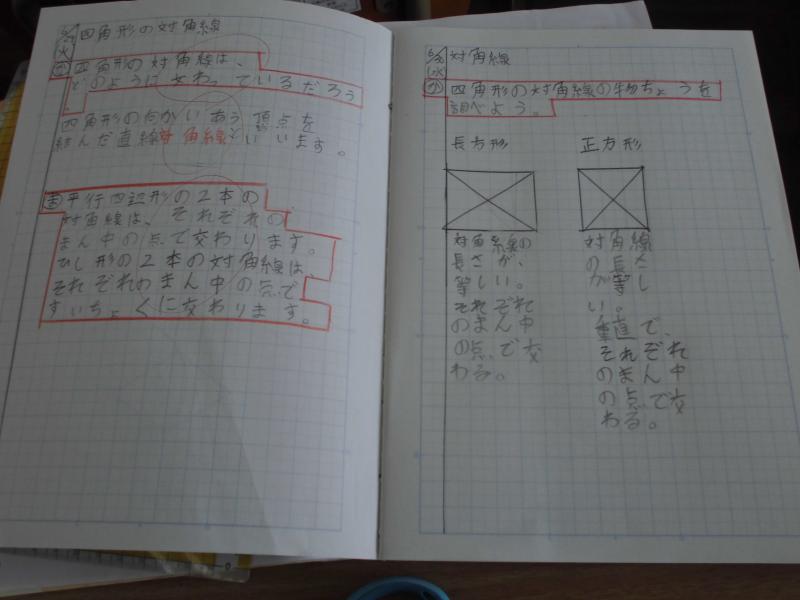 四角形の対角線
火
四角形の対角線は、
どのように交わっているだろう
四角形の向かいあう頂点を
結んだ直線対角線といいます。
平行四辺形の2本の
対角線は、それぞれの、
まん中の点で交わります。
ひし形の2本の対角線は、
それぞれのまん中の点で
すいちょくに交わります。
対角線
水
四角形の対角線の特ちょうを
調べよう。
長方形
対角線の
長さが、
等しい。
それぞれ
のまん中
の点で交
わる。
正方形
対角線
の長さ
が等し
い。
垂直で、
それぞれ
のまん中
の点で交
わる。